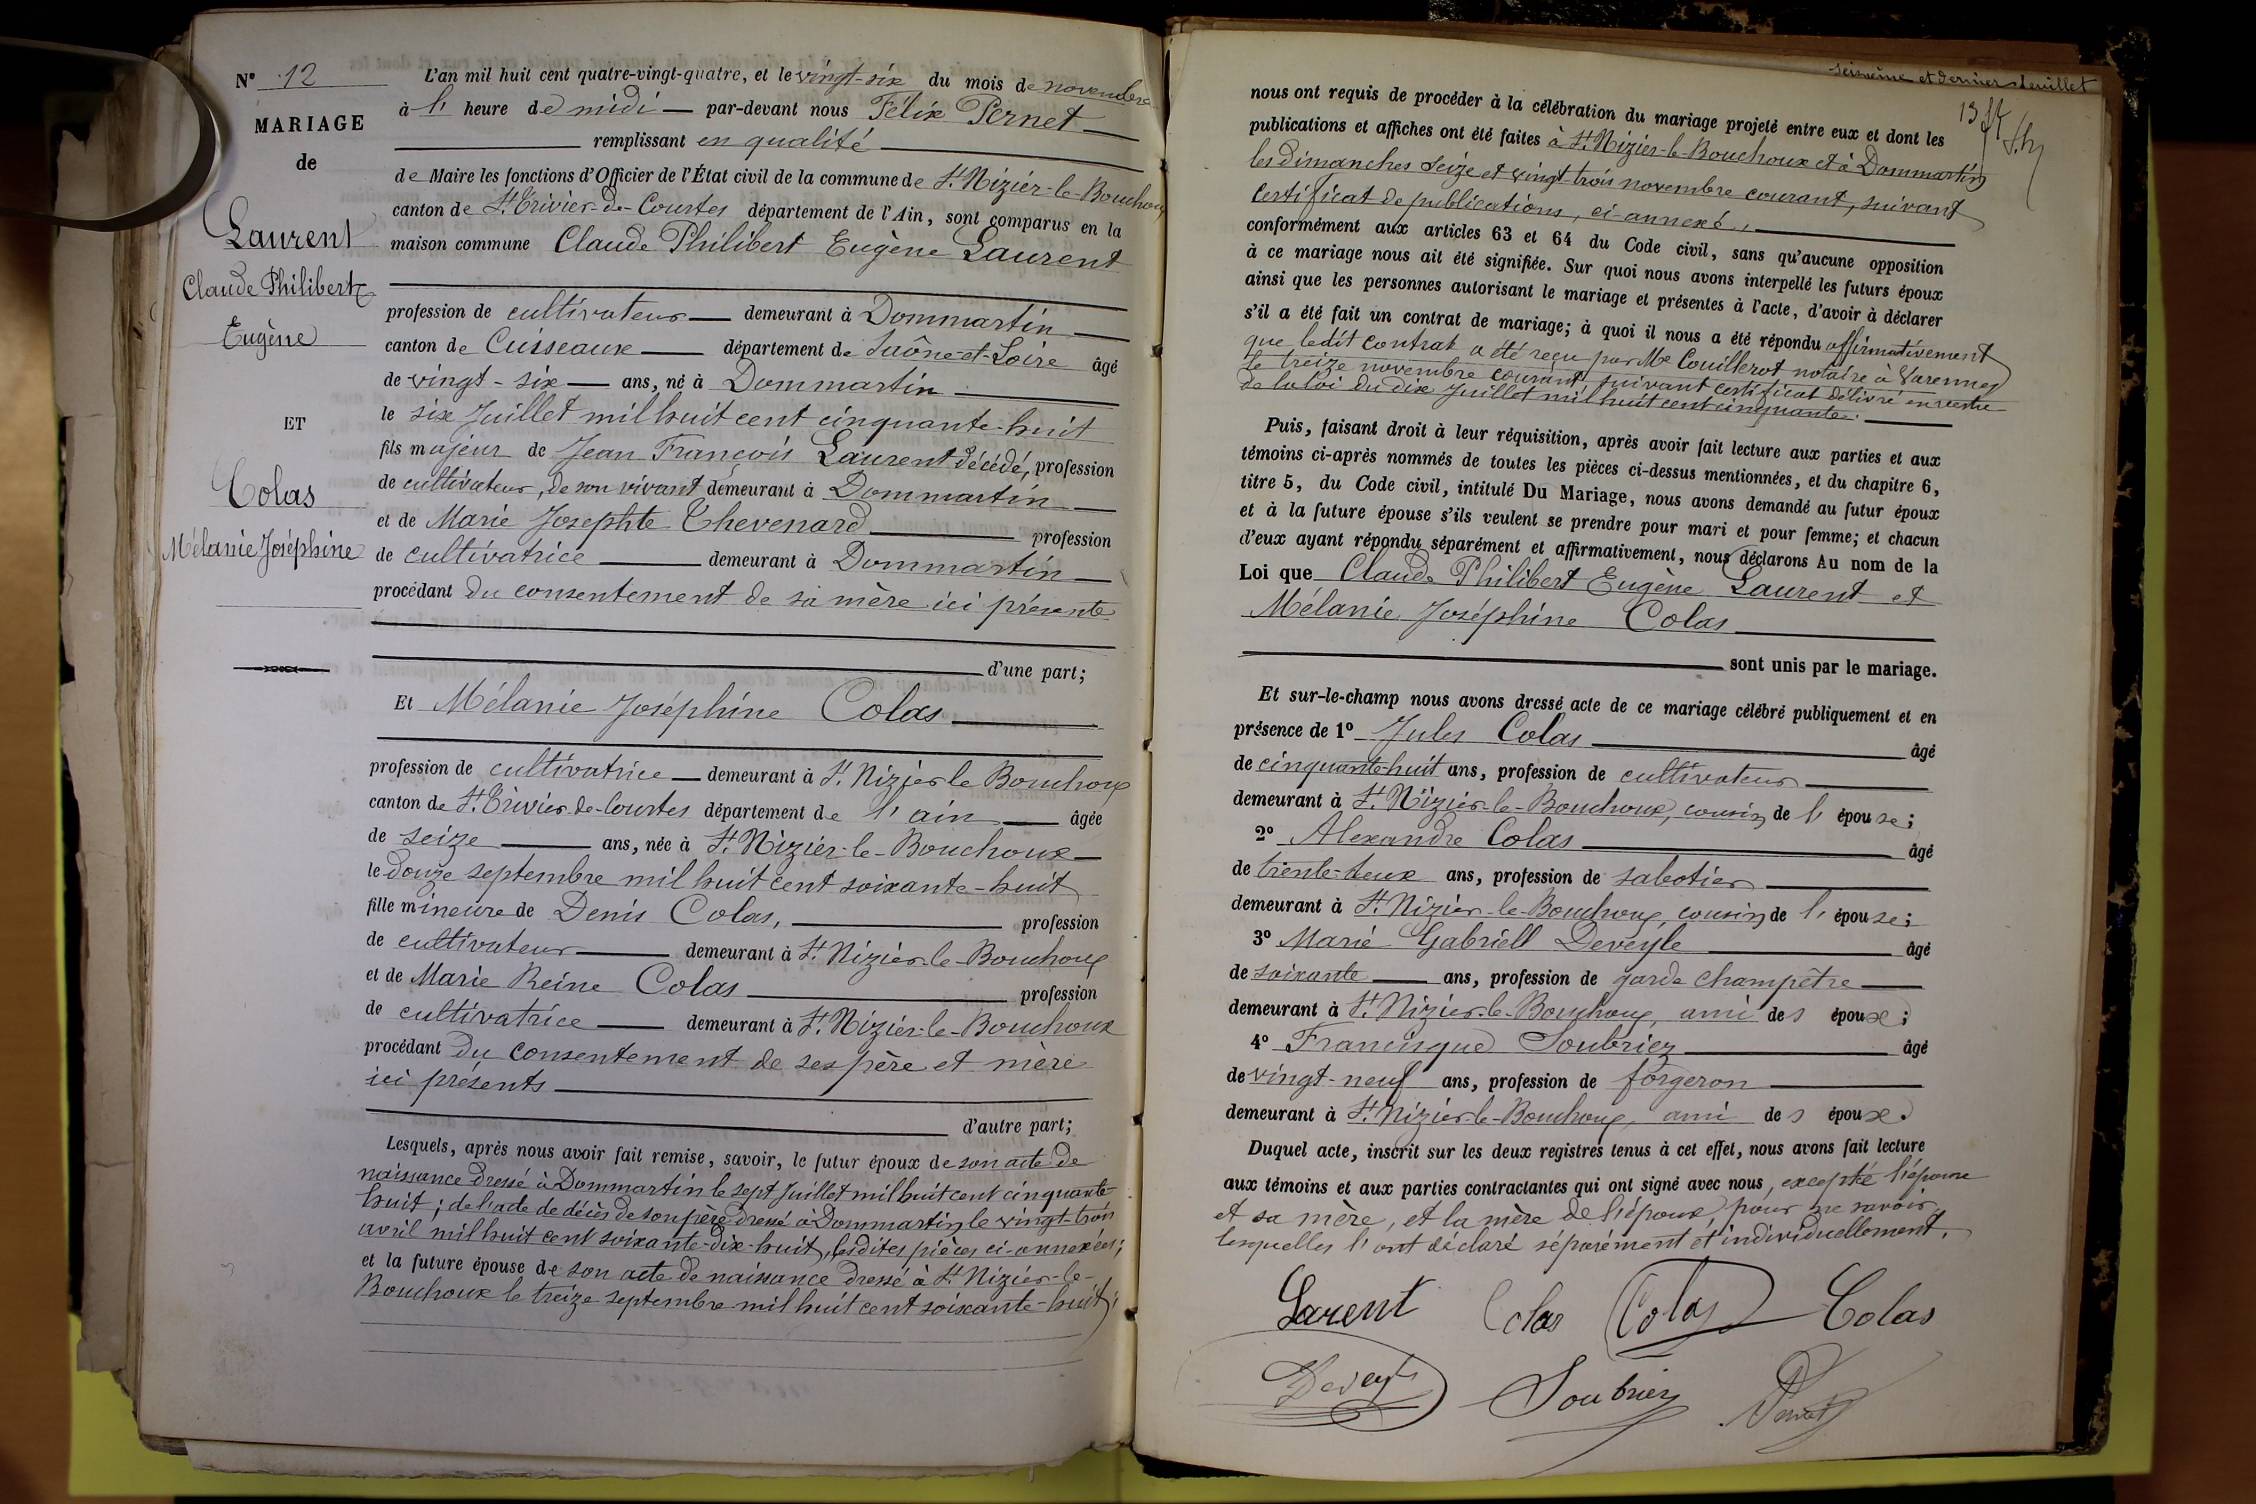 N° 12
MARIAGE
de
Laurent
Claude Philibert
Eugène
ET
Colas
Mélanie Joséphine
L'an mil huit cent quatre-vingt-quatre, et le vingt-six du mois de novembre
à l' heure de midi par-devant nous Félix Pernet
remplissant en qualité
de Maire les fonctions d'Officier de l'État civil de la commune de St Nizier-le-Bouchoux
canton de St Trivier-de-Courtes département de l'Ain, sont comparus en la
maison commune Claude Philibert Eugène Laurent
profession de cultivateur demeurant à Dommartin
canton de Cuiseaux département de Saône-et-Loire âgé
de vingt-six ans, né à Dommartin
le six Juillet mil huit cent cinquante-huit
fils majeur de Jean François Laurent décédé, profession
de cultivateur, de son vivant demeurant à Dommartin
et de Marie Josephte Thevenard profession
de cultivatrice demeurant à Dommartin
procédant du consentement de sa mère ici présente
d'une part;
Et Mélanie Joséphine Colas
profession de cultivatrice demeurant à St Nizier le Bouchoux
canton de St Trivier-de-Courtes département de l'ain âgée
de seize ans, née à St Nizier-le-Bouchoux
le douze septembre mil huit cent soixante-huit
fille mineure de Denis Colas, profession
de cultivateur demeurant à St Nizier-le-Bouchoux
et de Marie Reine Colas profession
de cultivatrice demeurant à St Nizier-le-Bouchoux
procédant du consentement de ses père et mère
ici présents
d'autre part;
Lesquels, après nous avoir fait remise, savoir, le futur époux de son acte de
naissance dressé à Dommartin le sept Juillet mil huit cent cinquante-
huit; de l'acte de décès de son père dressé à Dommartin le vingt-trois
avril mil huit cent soixante-dix-huit, lesdites pièces ci-annexées;
et la future épouse de son acte de naissance dressé à St Nizier-le-
Bouchoux le treize septembre mil huit cent soixante-huit;
seizième et dernier feuillet
nous ont requis de procéder à la célébration du mariage projeté entre eux et dont les
publications et affiches ont été faites à St Nizier-le-Bouchoux et à Dommartin
les dimanches seize et vingt-trois novembre courant, suivant
certificat de publications, ci-annexé,
conformément aux articles 63 et 64 du Code civil, sans qu'aucune opposition
à ce mariage nous ait été signifiée. Sur quoi nous avons interpellé les futurs époux
ainsi que les personnes autorisant le mariage et présentes à l'acte, d'avoir à déclarer
s'il a été fait un contrat de mariage; à quoi il nous a été répondu affirmativement
que ledit contrat a été reçu par Me Couillerot notaire à Varennes
le treize novembre courant, suivant certificat délivré en vertu
de la loi du dix Juillet mil huit cent cinquante.
Puis, faisant droit à leur réquisition, après avoir fait lecture aux parties et aux
témoins ci-après nommés de toutes les pièces ci-dessus mentionnées, et du chapitre 6,
titre 5, du Code civil, intitulé Du Mariage, nous avons demandé au futur époux
et à la future épouse s'ils veulent se prendre pour mari et pour femme; et chacun
d'eux ayant répondu séparément et affirmativement, nous déclarons Au nom de la
Loi que Claude Philibert Eugène Laurent et
Mélanie Joséphine Colas
sont unis par le mariage.
Et sur-le-champ nous avons dressé acte de ce mariage célébré publiquement et en
présence de 1° Jules Colas âgé
de cinquante-huit ans, profession de cultivateur
demeurant à St Nizier-le-Bouchoux, cousin de l'épouse;
2° Alexandre Colas âgé
de trente-deux ans, profession de sabotier
demeurant à St Nizier-le-Bouchoux, cousin de l'épouse;
3° Marie Gabriell Deveyle âgé
de soixante ans, profession de garde champêtre
demeurant à St Nizier-le-Bouchoux, ami des époux;
4° Francisque Soubriez âgé
de vingt-neuf ans, profession de forgeron
demeurant à St Nizier-le-Bouchoux, ami des époux.
Duquel acte, inscrit sur les deux registres tenus à cet effet, nous avons fait lecture
aux témoins et aux parties contractantes qui ont signé avec nous, excepté l'épouse
et sa mère, et la mère de l'époux, pour ne savoir,
lesquelles l'ont déclaré séparément et individuellement.
Larent Colas Colas Colas
Deveyle Soubriez Pernet